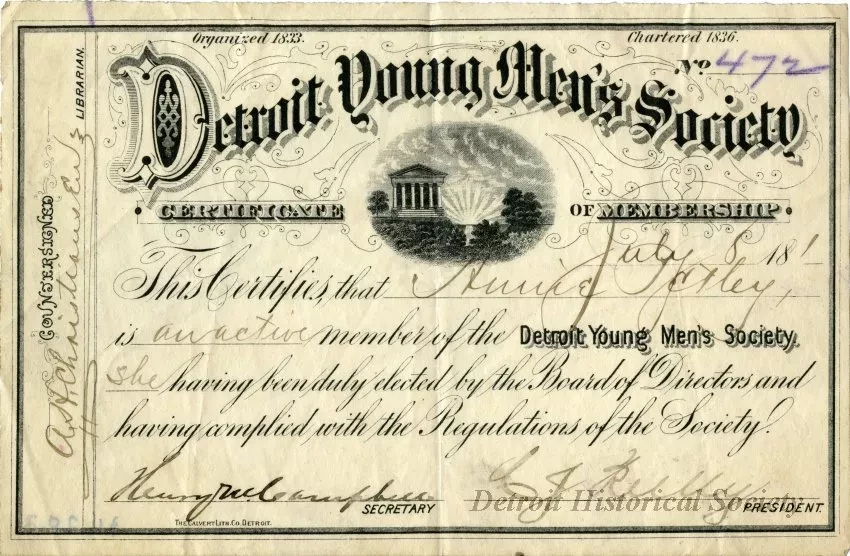 Organized 1833.
Chartered 1836.
No 472
Detroit Young Men's Society
CERTIFICATE OF MEMBERSHIP.
July 8, 18
This Certifies, that Annie
is an active member of the Detroit Young Men's Society.
she having been duly elected by the Board of Directors and
having complied with the Regulations of the Society.
Henry M. Campbell
SECRETARY
PRESIDENT.
THE CALVERT LITH. CO. DETROIT.
COUNTERSIGNED
LIBRARIAN.
Detroit Historical Society